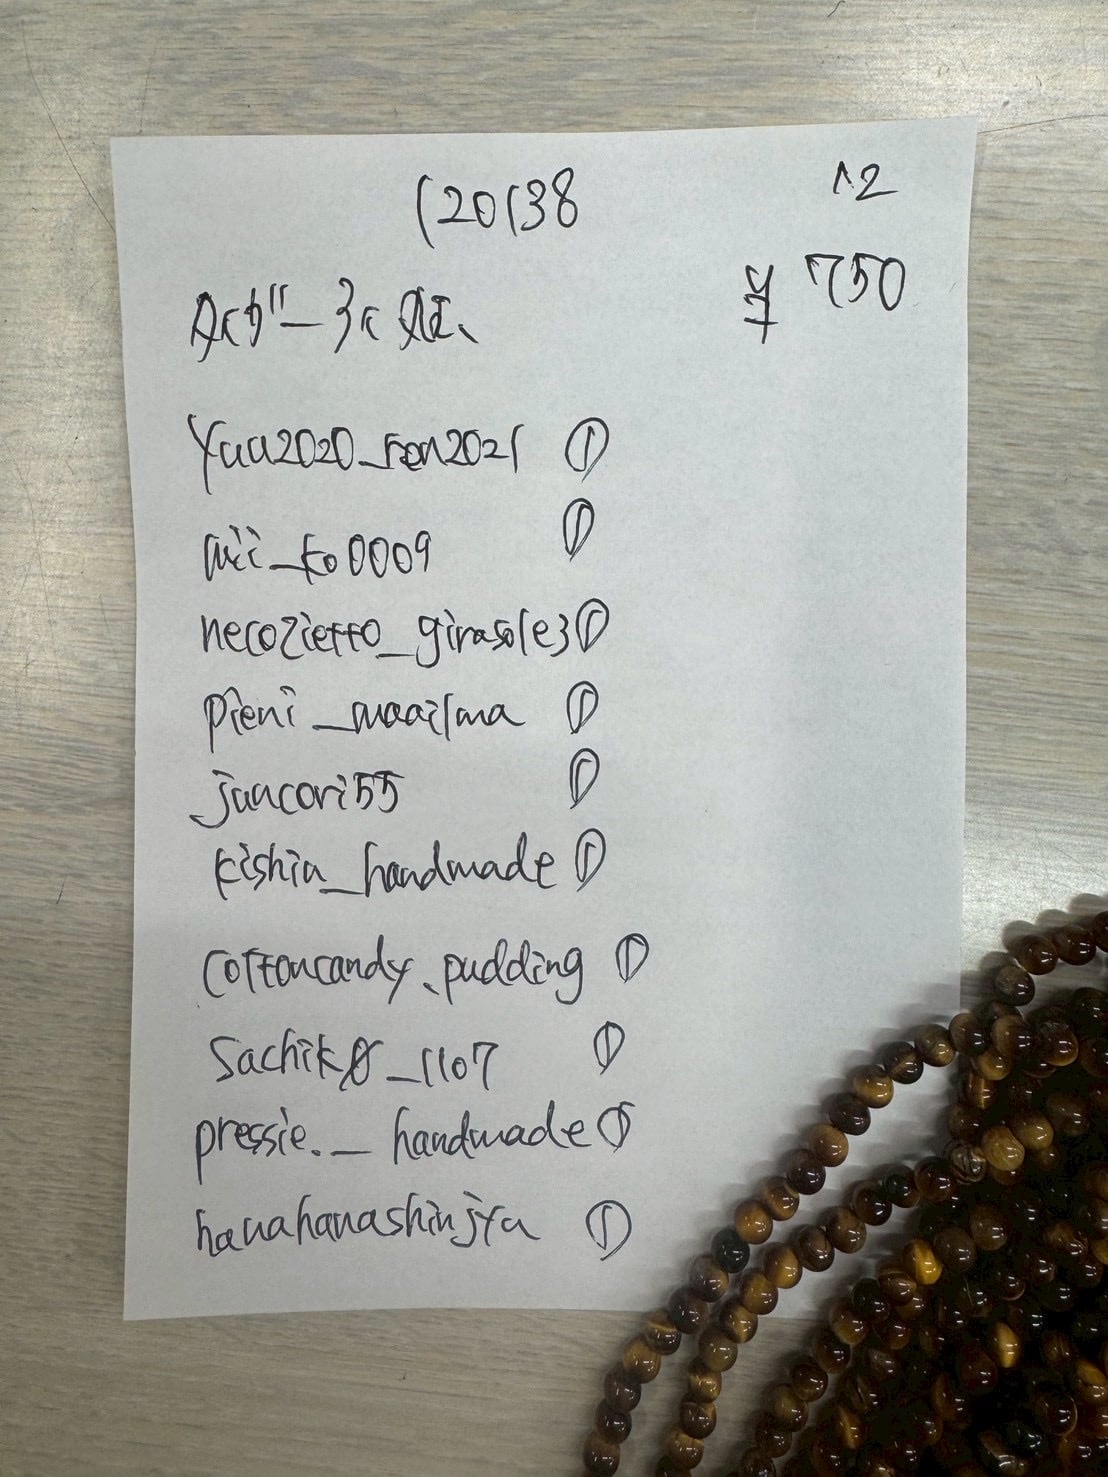 120138
12
¥ 750
タイガーアイ 丸玉
yuu2020_ren2021 ①
mii_ko0009 ①
necozietto_girasole3 ①
pieni_maailma ①
juncori55 ①
kishin_handmade ①
cottoncandy.pudding ①
sachik8_1107 ①
pressie._handmade ①
hanahanashinjyu ①